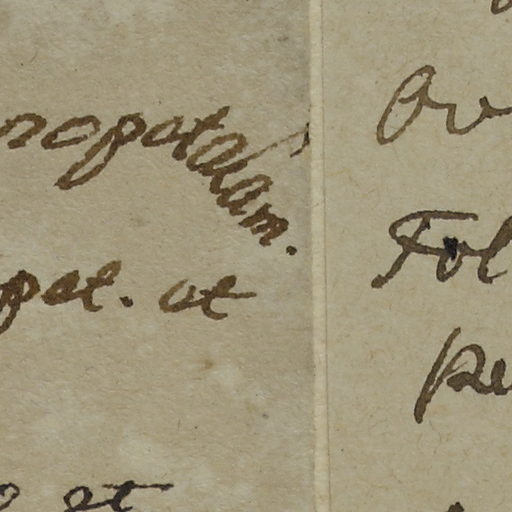 ropetalam.
pet. et
et
Ov
Fol
pe